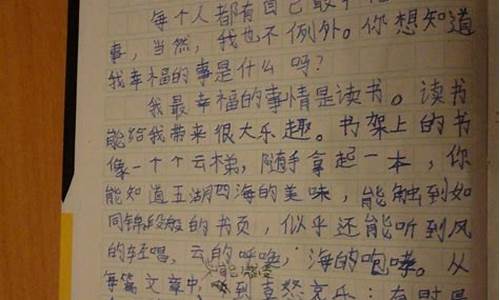 每个人都有自己最幸福的
事，当然，我也不例外。你想知道
我幸福的事是什么吗？
我最幸福的事情是读书。读书
能给我带来很大乐趣。书架上的书
像一个个云梯，随手拿起一本，你
能知道五湖四海的美味，能触到如
同锦段般的书页，似乎还能听到风
的轻唱，云的呼唤，海的咆哮。从
每篇文章中，能感受到喜怒哀乐：有时